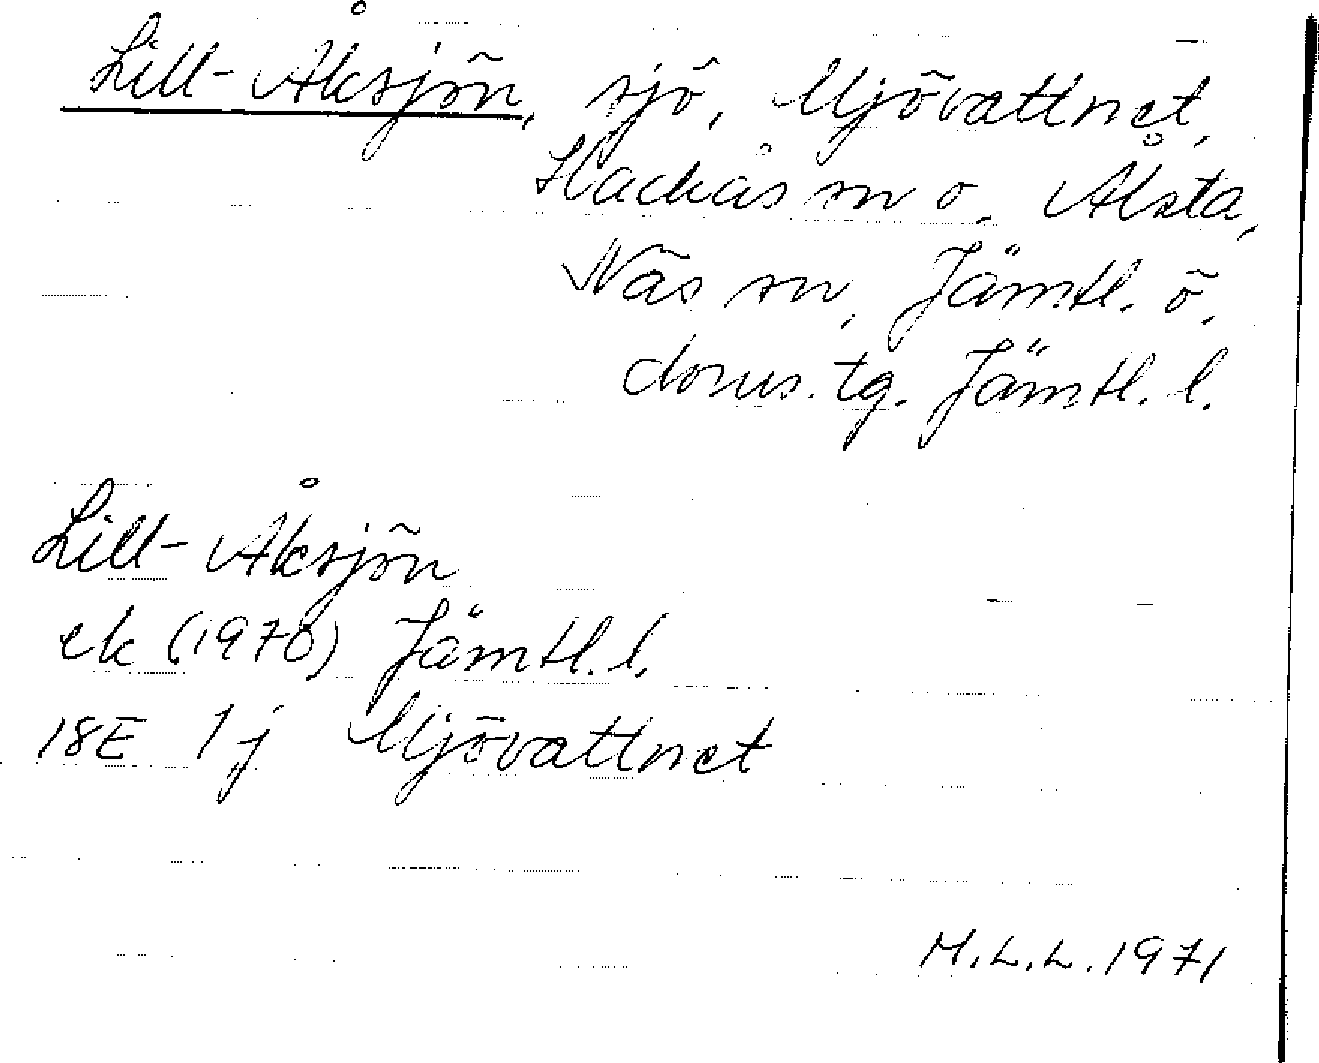 Lill-Åksjön, sjö, Mjövattnet,
Hackås sn o. Ålsta,
Näs sn, Jämtl. ö.
doms. tg. Jämtl. l.
Lill-Åksjön
ek (1970) Jämtl. l.
18E 1j Mjövattnet
M.L.L. 1971